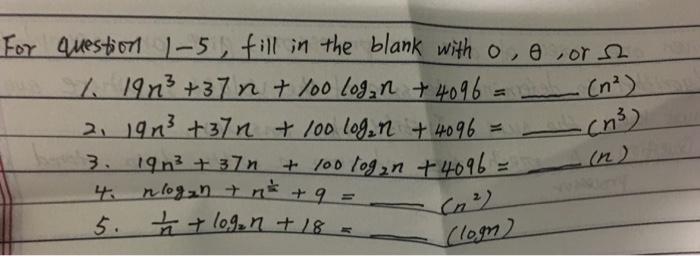 For question 1-5, fill in the blank with O, θ, or Ω
1. 19n³ + 37n + 100 log₂n + 4096 = ____ (n²)
2. 19n³ + 37n + 100 log₂n + 4096 = ____ (n³)
3. 19n³ + 37n + 100 log₂n + 4096 = ____ (n)
4. nlog₂n + n^½ + 9 = ____ (n²)
5. 1/n + log₂n + 18 = ____ (logn)